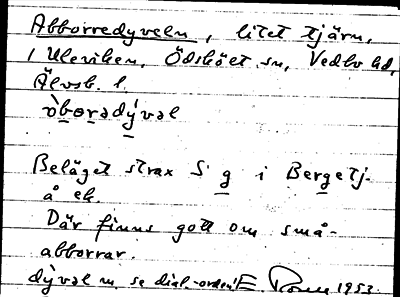 Abborredyveln, litet tjärn,
i Uleviken, Ödskölt sn, Vedbo hd,
Älvsb. l.
òboradýval
Beläget strax S g i Bergetj.
å ek.
Där finns gott om små-
abborrar.
dyvel m. se dial-orden! E 1953